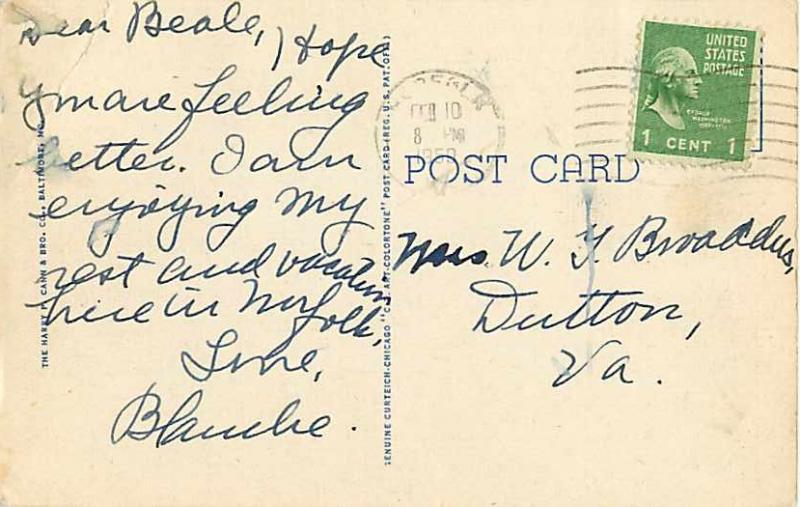 Dear Beale, I Hope
you are feeling
better. I am
enjoying my
rest and vacation
here in Norfolk,
Love,
Blanche.
THE HARRY P. CANN & BRO. CO., BALTIMORE, MD.
GENUINE CURTEICH-CHICAGO "C.T. ART-COLORTONE" POST CARD (REG. U.S. PAT. OFF.)
FEB 10
8 PM
POST CARD
UNITED
STATES
POSTAGE
GEORGE
WASHINGTON
1 CENT 1
Mrs. W. F. Broaddus,
Dutton,
Va.